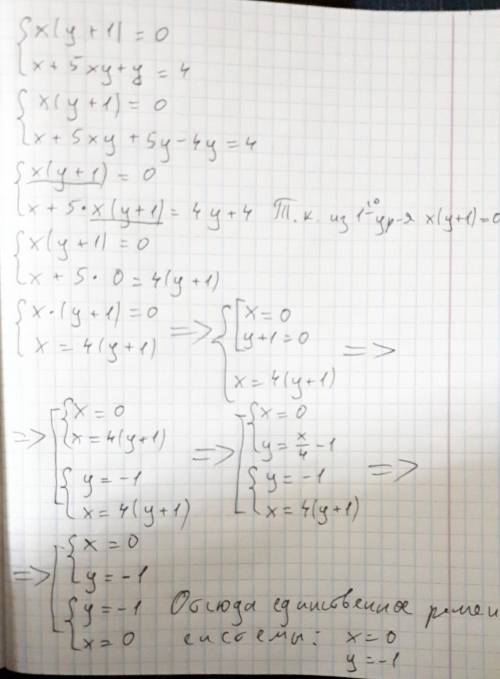 { x(y+1) = 0
{ x + 5xy + y = 4
{ x(y+1) = 0
{ x + 5xy + 5y - 4y = 4
{ x(y+1) = 0
{ x + 5·x(y+1) = 4y + 4 Т. к. из 1-го ур-я x(y+1)=0
{ x(y+1) = 0
{ x + 5·0 = 4(y+1)
{ x·(y+1) = 0
{ x = 4(y+1) => { [ x = 0
[ y+1 = 0
x = 4(y+1) =>
=> [ { x = 0
{ x = 4(y+1)
{ y = -1
{ x = 4(y+1) => [ { x = 0
{ y = x/4 - 1
{ y = -1
{ x = 4(y+1) =>
=> [ { x = 0
{ y = -1
{ y = -1 Отсюда единственное решен
{ x = 0 системы: x = 0
y = -1